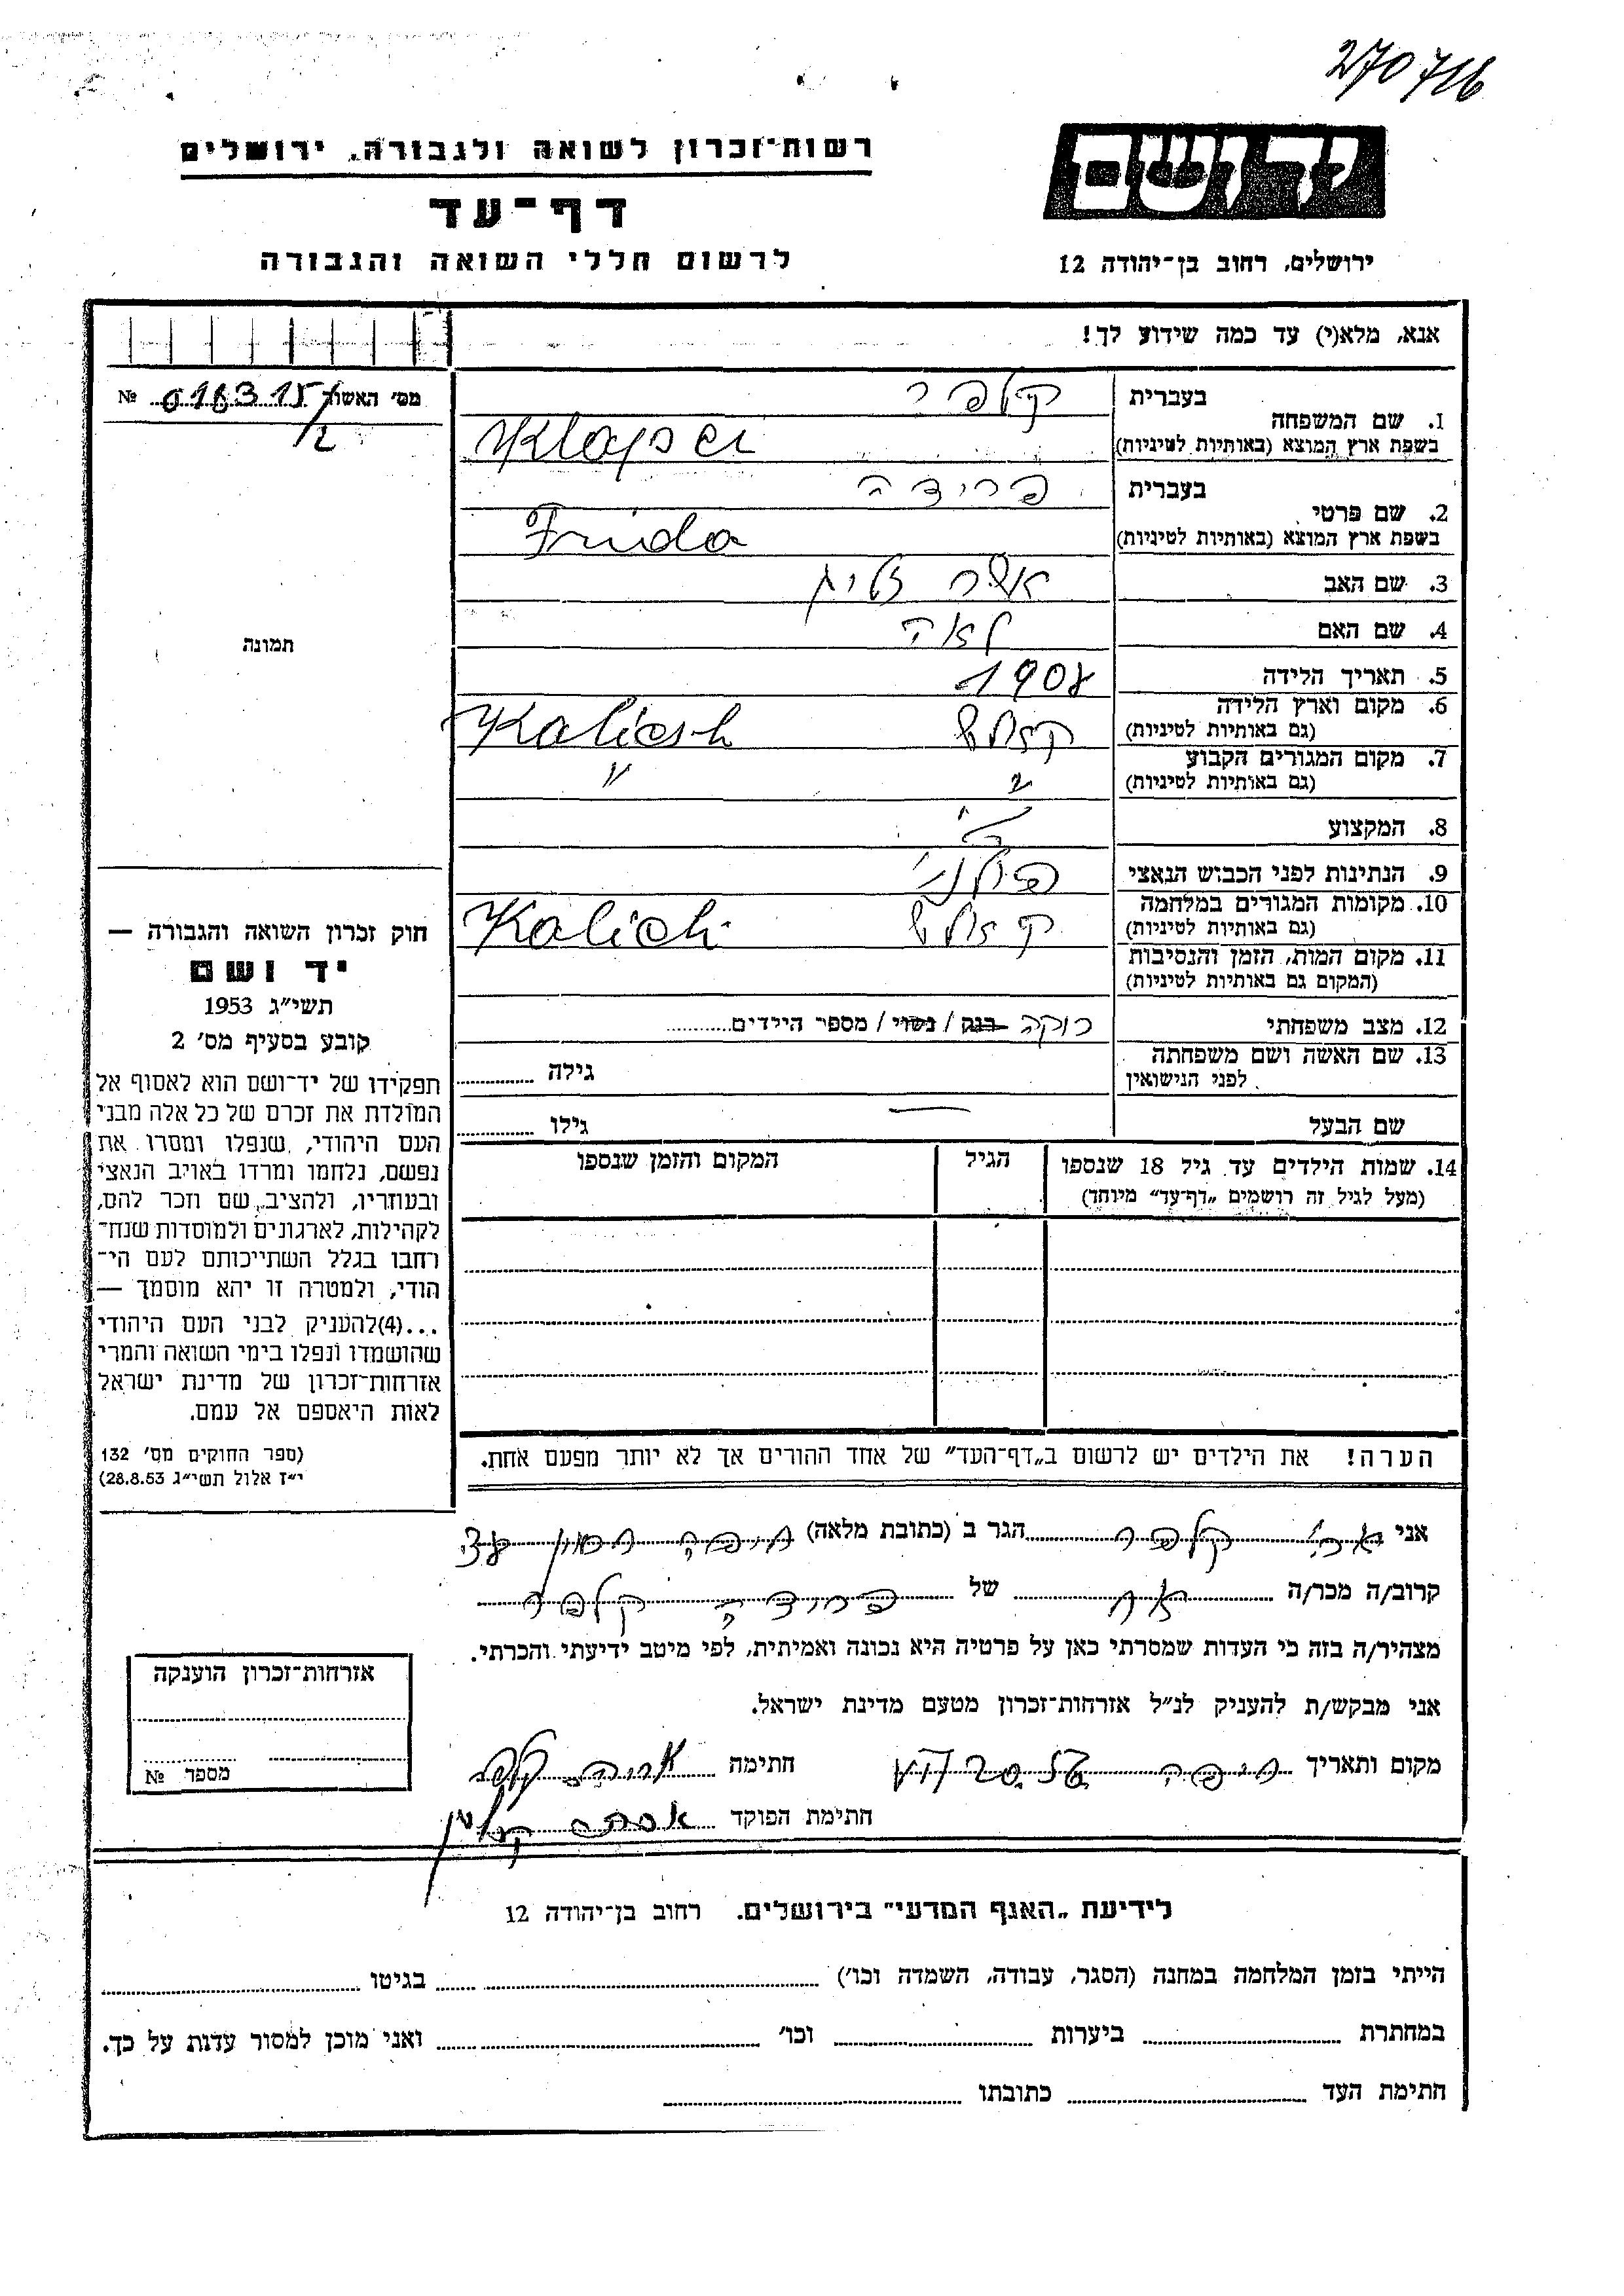 270716
רשות־זכרון לשואה ולגבורה, ירושלים
דף־עד
לרשום חללי השואה והגבורה
יד ושם
ירושלים, רחוב בן־יהודה 12
אנא, מלא(י) עד כמה שידוע לך!
מס׳ האשור 018315/2 №
תמונה
1. שם המשפחה
בעברית קלפר
בשפת ארץ המוצא (באותיות לטיניות) Klaper
2. שם פרטי
בעברית פרידה
בשפת ארץ המוצא (באותיות לטיניות) Frida
3. שם האב אשר זליג
4. שם האם לאה
5. תאריך הלידה 1908
6. מקום וארץ הלידה
(גם באותיות לטיניות) קאליש Kaliesh
7. מקום המגורים הקבוע
(גם באותיות לטיניות) " "
8. המקצוע
9. הנתינות לפני הכבוש הנאצי פולני
10. מקומות המגורים במלחמה
(גם באותיות לטיניות) קאליש Kalich
11. מקום המות, הזמן והנסיבות
(המקום גם באותיות לטיניות)
12. מצב משפחתי רוקה רווק / נשוי / מספר הילדים
13. שם האשה ושם משפחתה
לפני הנישואין גילה
שם הבעל — גילו
14. שמות הילדים עד גיל 18 שנספו
(מעל לגיל זה רושמים „דף־עד” מיוחד)
הגיל
המקום והזמן שנספו
הערה! את הילדים יש לרשום ב„דף־העד” של אחד ההורים אך לא יותר מפעם אחת.
חוק זכרון השואה והגבורה —
יד ושם
תשי״ג 1953
קובע בסעיף מס׳ 2
תפקידו של יד־ושם הוא לאסוף אל
המולדת את זכרם של כל אלה מבני
העם היהודי, שנפלו ומסרו את
נפשם, נלחמו ומרדו באויב הנאצי
ובעוזריו, ולהציב שם וזכר להם,
לקהילות, לארגונים ולמוסדות שנח־
רבו בגלל השתייכותם לעם הי־
הודי, ולמטרה זו יהא מוסמך —
...(4)להעניק לבני העם היהודי
שהושמדו ונפלו בימי השואה והמרי
אזרחות־זכרון של מדינת ישראל
לאות היאספם אל עמם.
(ספר החוקים מס׳ 132
י״ז אלול תשי״ג 28.8.53)
אני קלפר הגר ב (כתובת מלאה) חיפה
קרוב/ה מכר/ה אח של פרידה קלפר
מצהיר/ה בזה כי העדות שמסרתי כאן על פרטיה היא נכונה ואמיתית, לפי מיטב ידיעתי והכרתי.
אני מבקש/ת להעניק לנ״ל אזרחות־זכרון מטעם מדינת ישראל.
מקום ותאריך חיפה חתימה אריה קלפר
חתימת הפוקד אסתר
אזרחות־זכרון הוענקה
מספר №
לידיעת „האגף המדעי” בירושלים. רחוב בן־יהודה 12
הייתי בזמן המלחמה במחנה (הסגר, עבודה, השמדה וכו׳) בגיטו
במחתרת ביערות וכו׳ ואני מוכן למסור עדות על כך.
חתימת העד כתובתו